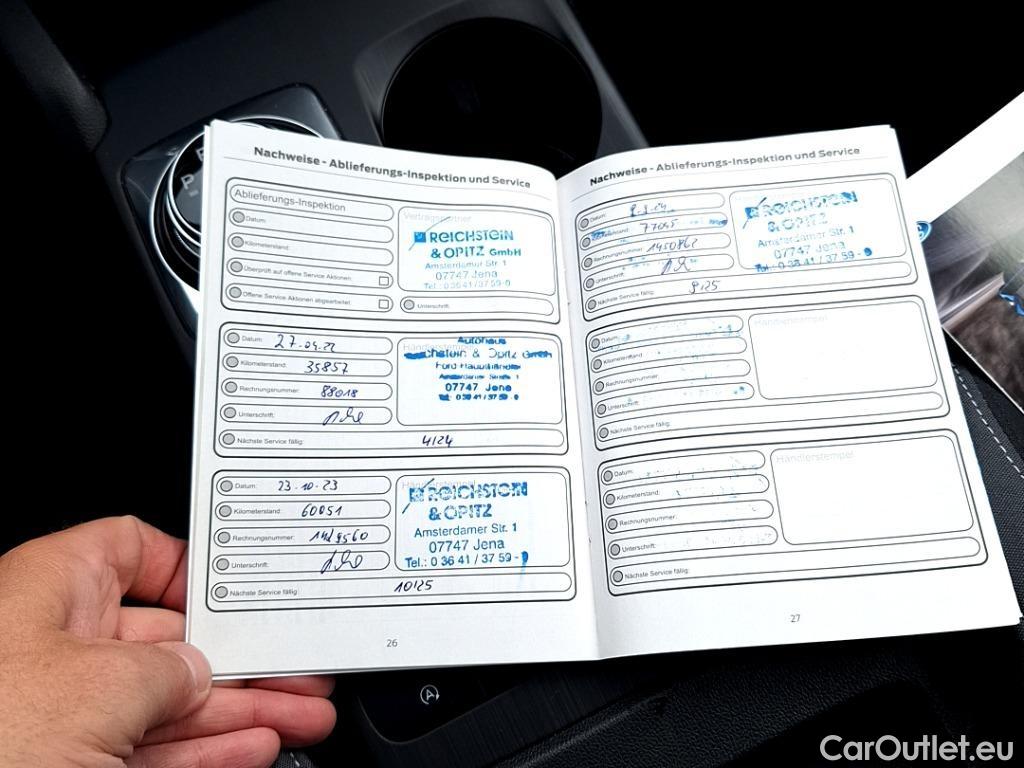 Nachweise - Ablieferungs-Inspektion und Service
Ablieferungs-Inspektion
Datum:
Kilometerstand:
Überprüft auf offene Service Aktionen:
Offene Service Aktionen abgearbeitet:
Vertragspartner
REICHSTEIN
& OPITZ GmbH
Amsterdamer Str. 1
07747 Jena
Tel.: 0 36 41 / 37 59-0
Unterschrift:
Datum: 27.04.22
Kilometerstand: 35857
Rechnungsnummer: 88018
Unterschrift:
Händlerstempel
Autohaus
Reichstein & Opitz GmbH
Ford Haupthändler
Amsterdamer Straße 1
07747 Jena
Tel: 03641/3759-0
Nächste Service fällig: 4/24
Datum: 23.10.23
Kilometerstand: 60051
Rechnungsnummer:
Unterschrift:
Händlerstempel
REICHSTEIN
& OPITZ
Amsterdamer Str. 1
07747 Jena
Tel.: 0 36 41 / 37 59 -
Nächste Service fällig: 10/25
26
Nachweise - Ablieferungs-Inspektion und Service
Datum:
Kilometerstand: 77045
Rechnungsnummer: 1450862
Unterschrift:
REICHSTEIN
& OPITZ
Amsterdamer Str. 1
07747 Jena
Tel.: 0 36 41 / 37 59 -
Nächste Service fällig: 9/25
Datum:
Kilometerstand:
Rechnungsnummer:
Unterschrift:
Händlerstempel
Nächste Service fällig:
Datum:
Kilometerstand:
Rechnungsnummer:
Unterschrift:
Händlerstempel
Nächste Service fällig:
27
P
A
CarOutlet.eu